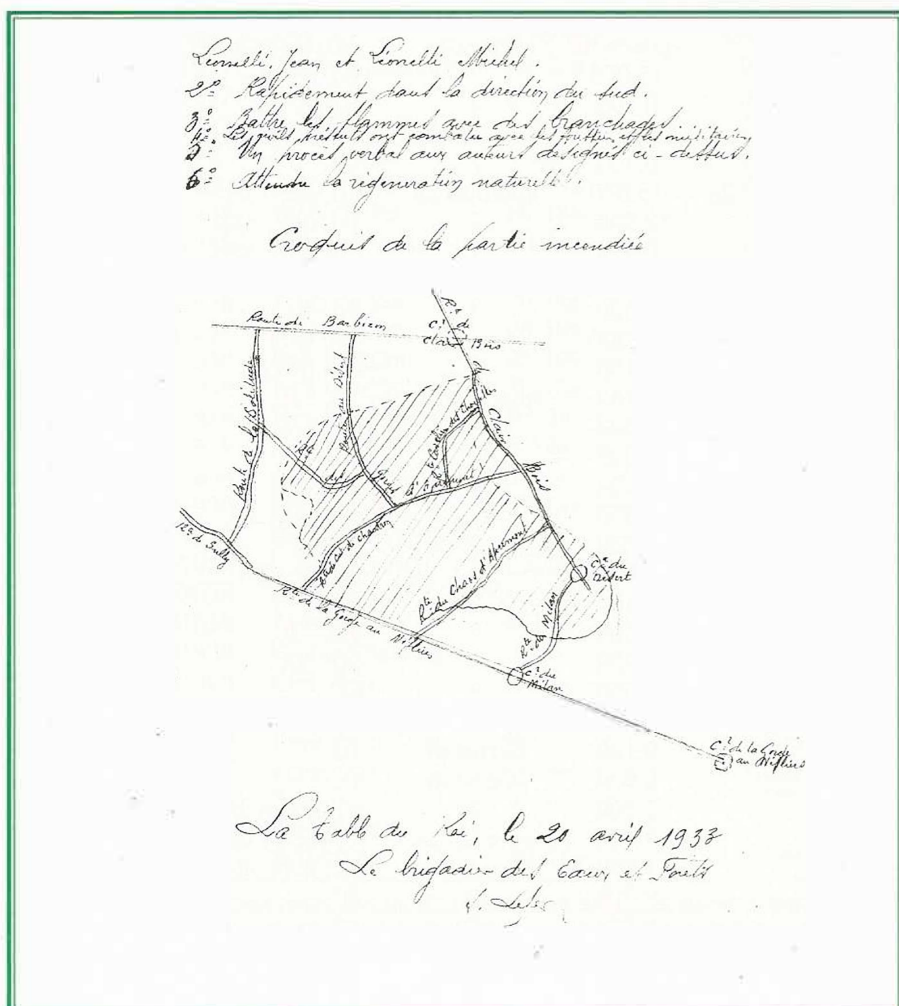 Lionelli, Jean et Lionelli Michel.
2º Rapidement dans la direction du sud.
3º Battre les flammes avec des branchages
4º Les civils présents ont combattu avec les militaires
5º Un procès verbal aux auteurs designés ci-dessus.
6º Attendre la régénération naturelle.
Croquis de la partie incendiée
Rte de
Route de Barbizon
Cr de
Clair Bois
du Clair Bois
Route de la Solitude
Route du Désert
Rte des Gorges d'Apremont
Rte de Sully
Rte de la Gorge au Néfliers
Rte du Chaos d'Apremont
Rte du Milan
Cr du
Désert
Cr du
Milan
Cr de la Gorge
au Néfliers
La Table du Roi, le 20 avril 1933
Le brigadier des Eaux et Forêts